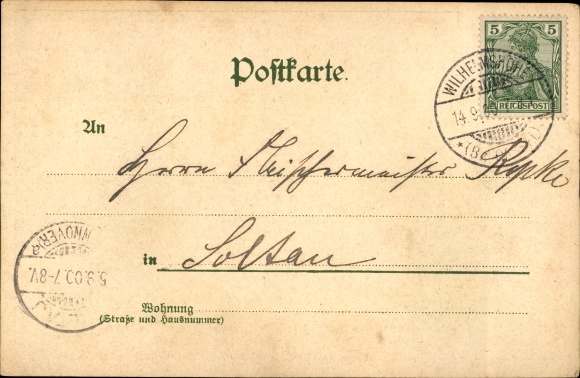 5 5
REICHSPOST
WILHELMSHÖHE
14.9.
Postkarte.
An
Herrn Fleischermeister Röpke
in Soltau
HANNOVER)
5.9.00. 7-8V.
Wohnung
(Straße und Hausnummer)